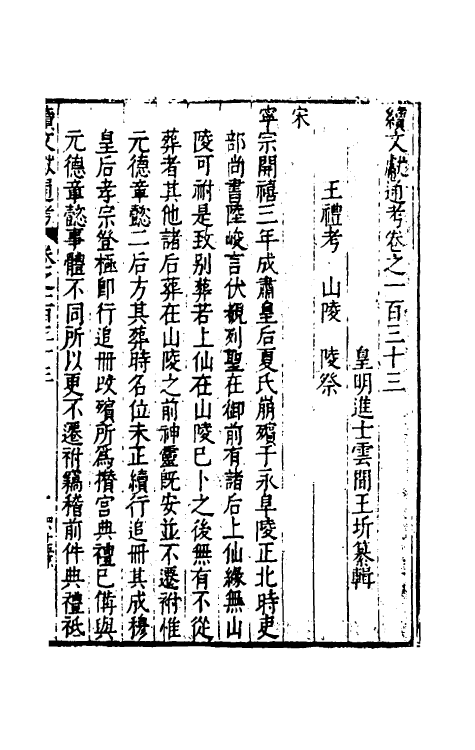 續文獻通考卷之一百三十三
皇明進士雲間王圻纂輯
王禮考　山陵　陵祭
宋
寧宗開禧三年成肅皇后夏氏崩殯于永阜陵正北時吏
部尚書陸峻言伏覩列聖在御前有諸后上仙緣無山
陵可祔是致別葬若上仙在山陵已卜之後無有不從
葬者其他諸后葬在山陵之前神靈既安並不遷祔惟
元德章懿二后方其葬時名位未正續行追冊其成穆
皇后孝宗登極卽行追冊改殯所爲攢宮典禮已備與
元德章懿事體不同所以更不遷祔竊稽前件典禮祇
續文獻通考　卷之一百三十三　一